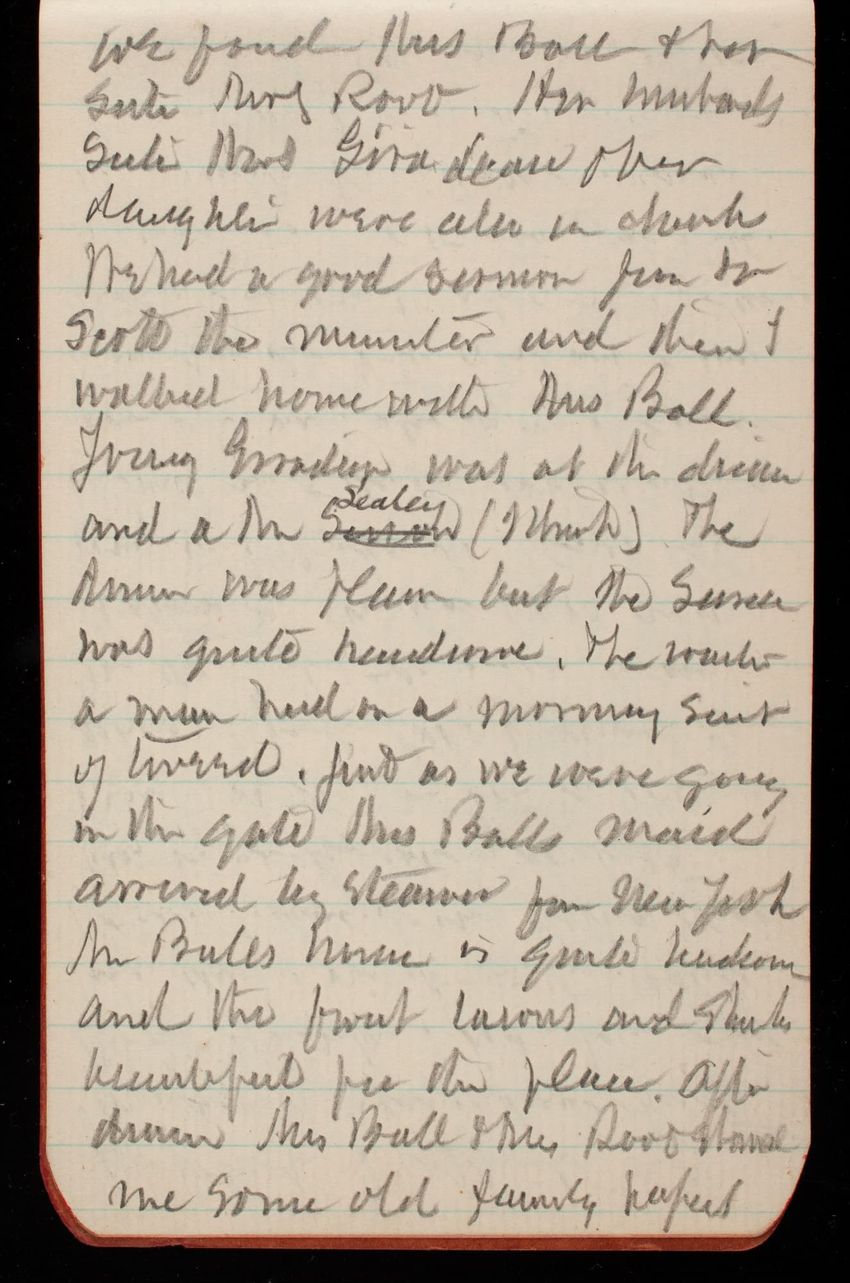 we found Mrs Ball & her
Sister Mrs Root. Her husbands
Sister Mrs Giradeau & her
daughter were also in church
We had a good sermon from Dr
Scott the minister and then I
walked home with Mrs Ball.
Young Giradeau was at the dinner
and a Mr Sealey (I think) The
dinner was plain but the Service
was quite handsome. The waiter
a man had on a morning suit
of tweed. Just as we were going
in the gate Mrs Balls maid
arrived by steamer from New York
Mr Balls house is quite handsome
and the front lawns and shrubs
beautiful for the place. After
dinner Mrs Ball & Mrs Root showed
me some old family papers